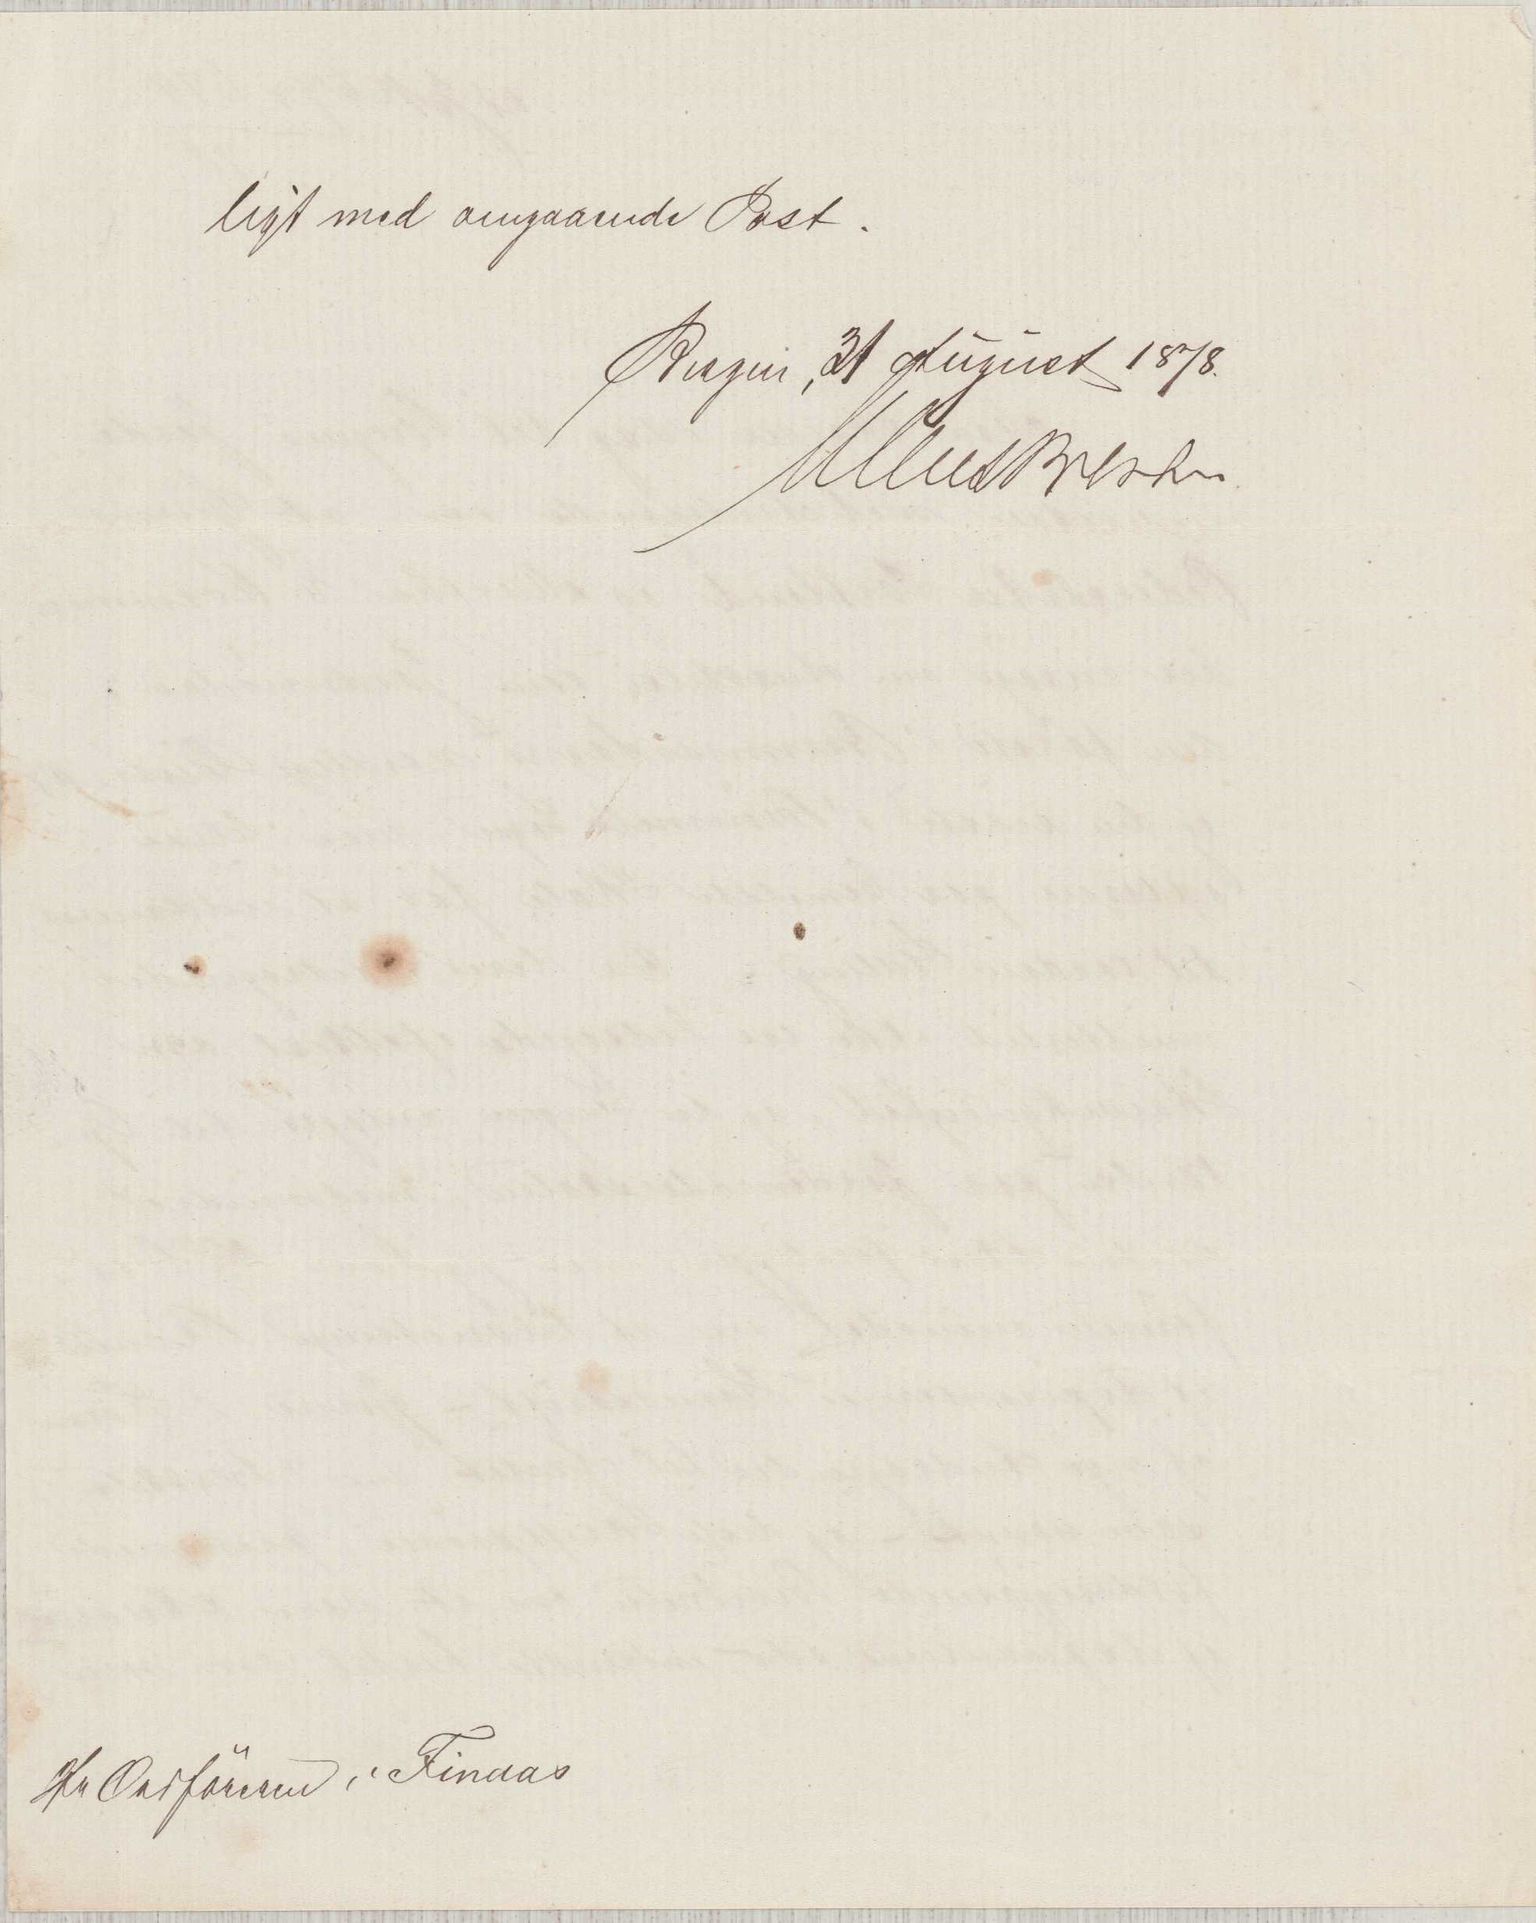 ligt med omgaaende Post.
Bergen, 31 August 1878.
Hr Ordföreren i Finaas